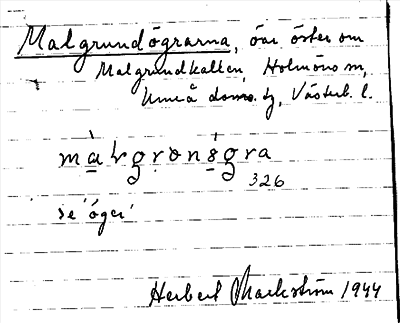 Malgrundögrarna, öar öster om
Malgrundkallen, Holmöns sn,
Umeå doms. tg, Västerb. l.
màlgrønsgra
326
se 'öger'
Herbert Markström 1944